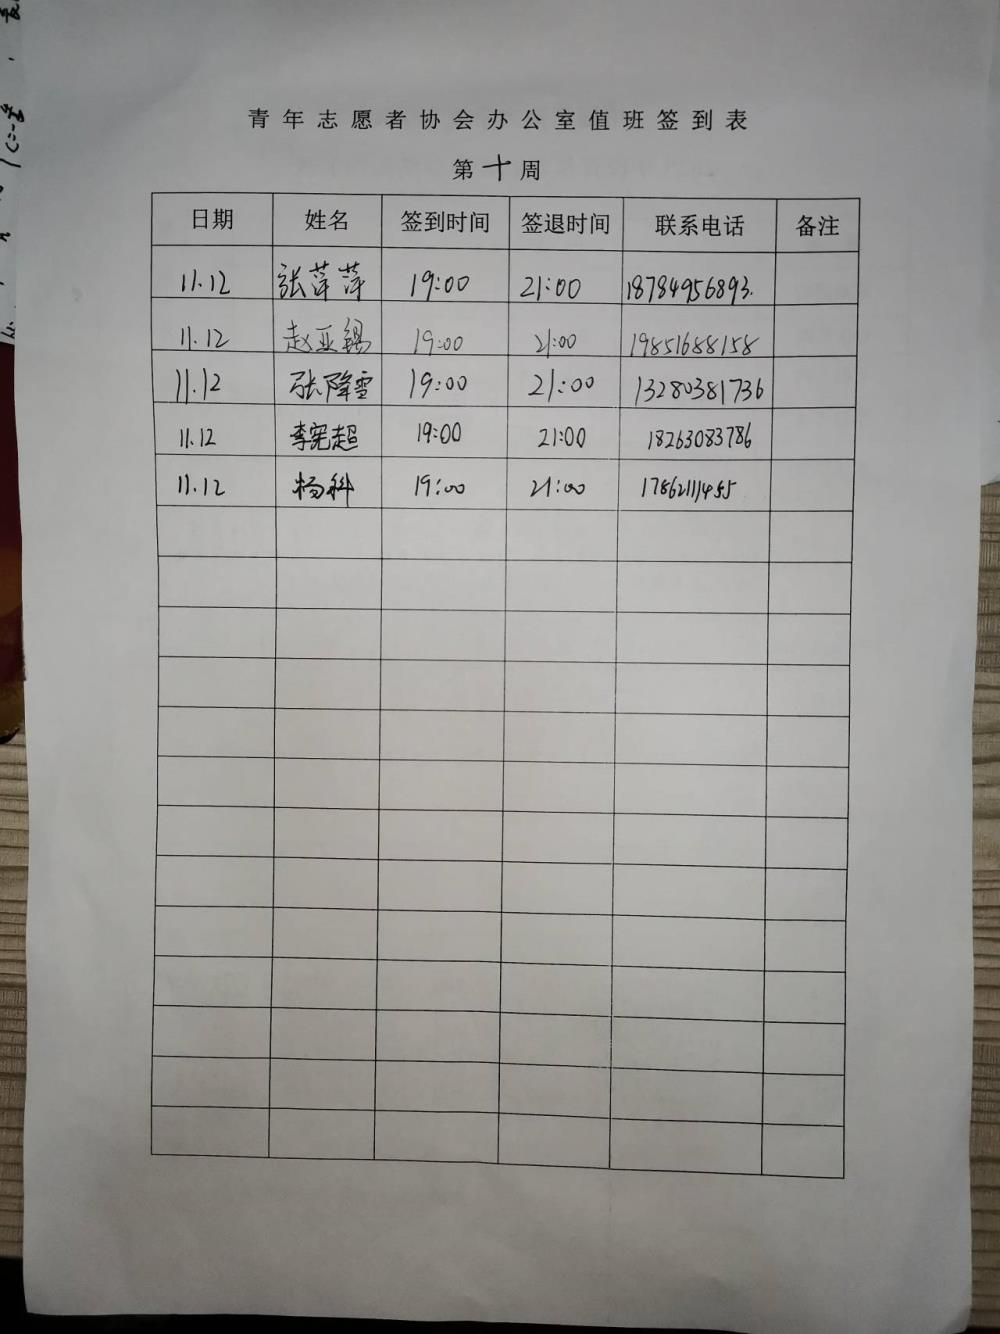 青年志愿者协会办公室值班签到表
第十周
日期 姓名 签到时间 签退时间 联系电话 备注
11.12 张萍萍 19:00 21:00 18784956893.
11.12 赵亚锡 19:00 21:00 19851688158
11.12 张降雪 19:00 21:00 13280381736
11.12 李宪超 19:00 21:00 18263083786
11.12 杨科 19:00 21:00 17862111455